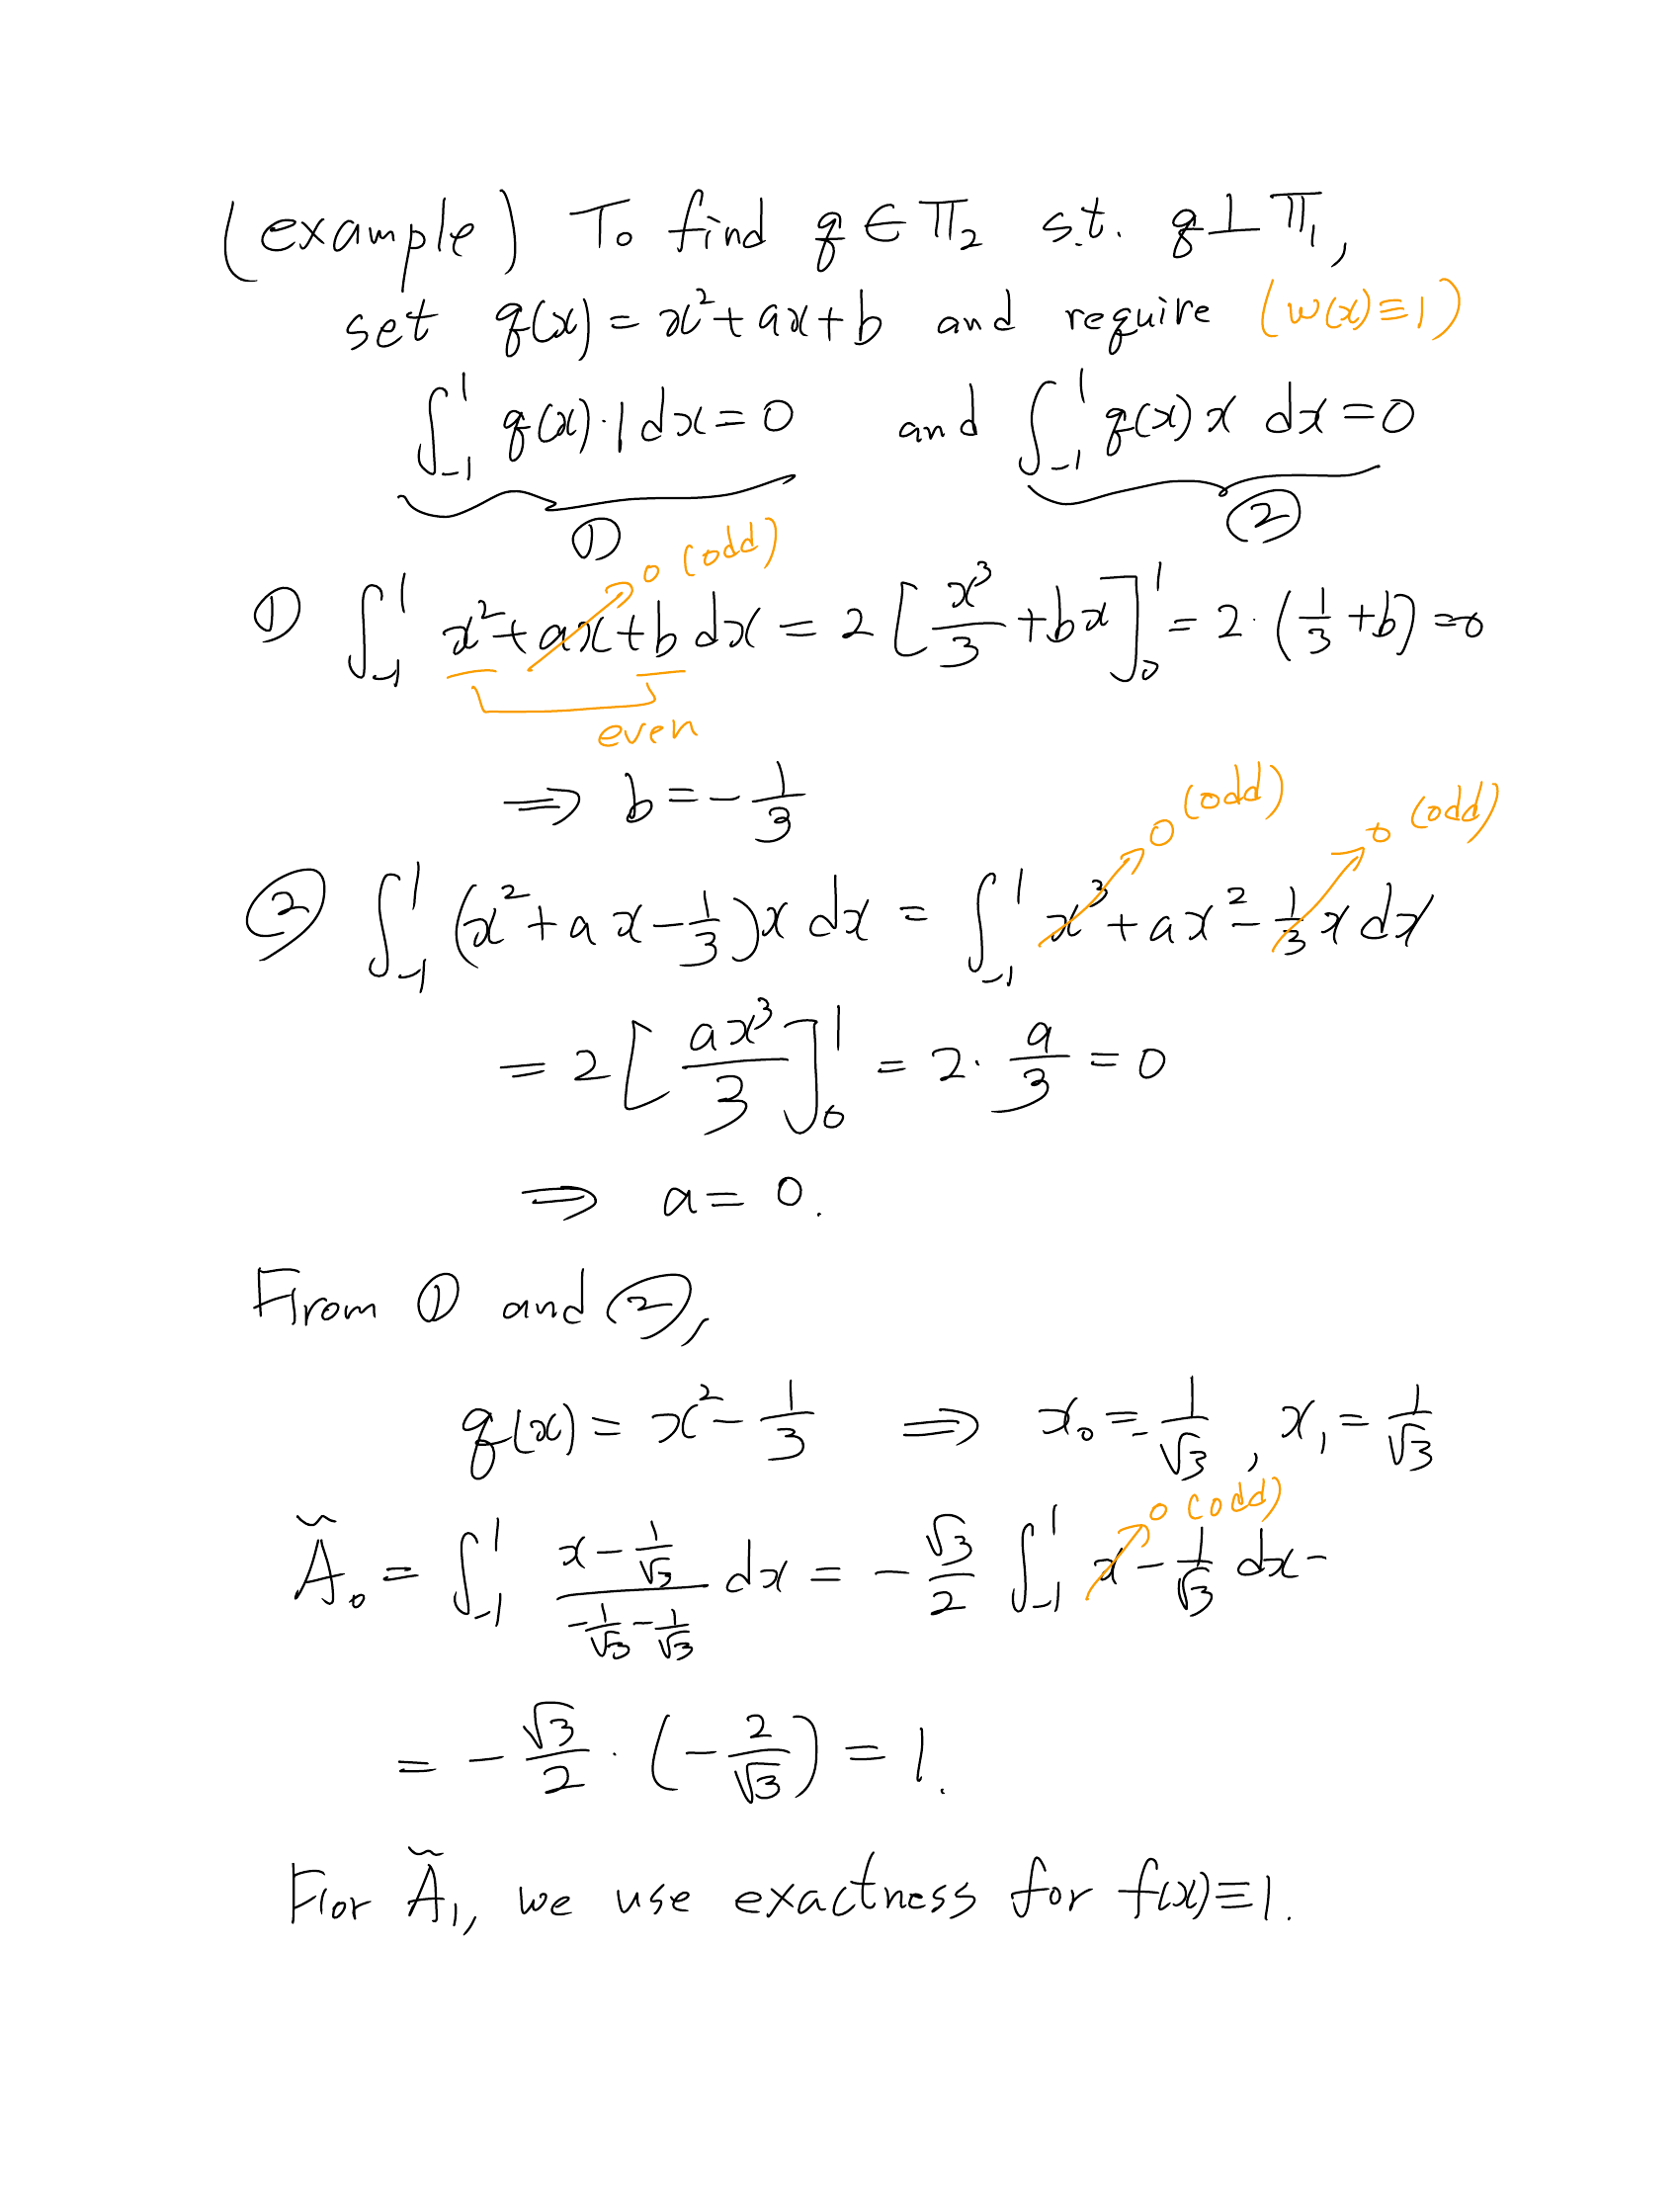 (example) To find q ∈ Π₂ s.t. q ⊥ Π₁,
set q(x) = x² + ax + b and require (w(x) ≡ 1)
∫₋₁¹ q(x)·1 dx = 0 and ∫₋₁¹ q(x) x dx = 0
① ②
① ∫₋₁¹ x² + ax + b dx = 2 [x³/3 + bx]₀¹ = 2·(1/3 + b) = 0
0 (odd)
even
⇒ b = -1/3
② ∫₋₁¹ (x² + ax - 1/3)x dx = ∫₋₁¹ x³ + ax² - 1/3 x dx
0 (odd) 0 (odd)
= 2 [ax³/3]₀¹ = 2·a/3 = 0
⇒ a = 0.
From ① and ②,
q(x) = x² - 1/3 ⇒ x₀ = -1/√3, x₁ = 1/√3
Ã₀ = ∫₋₁¹ (x - 1/√3)/(-1/√3 - 1/√3) dx = -√3/2 ∫₋₁¹ x - 1/√3 dx -
0 (odd)
= -√3/2 · (-2/√3) = 1.
For Ã₁, we use exactness for f(x) ≡ 1.